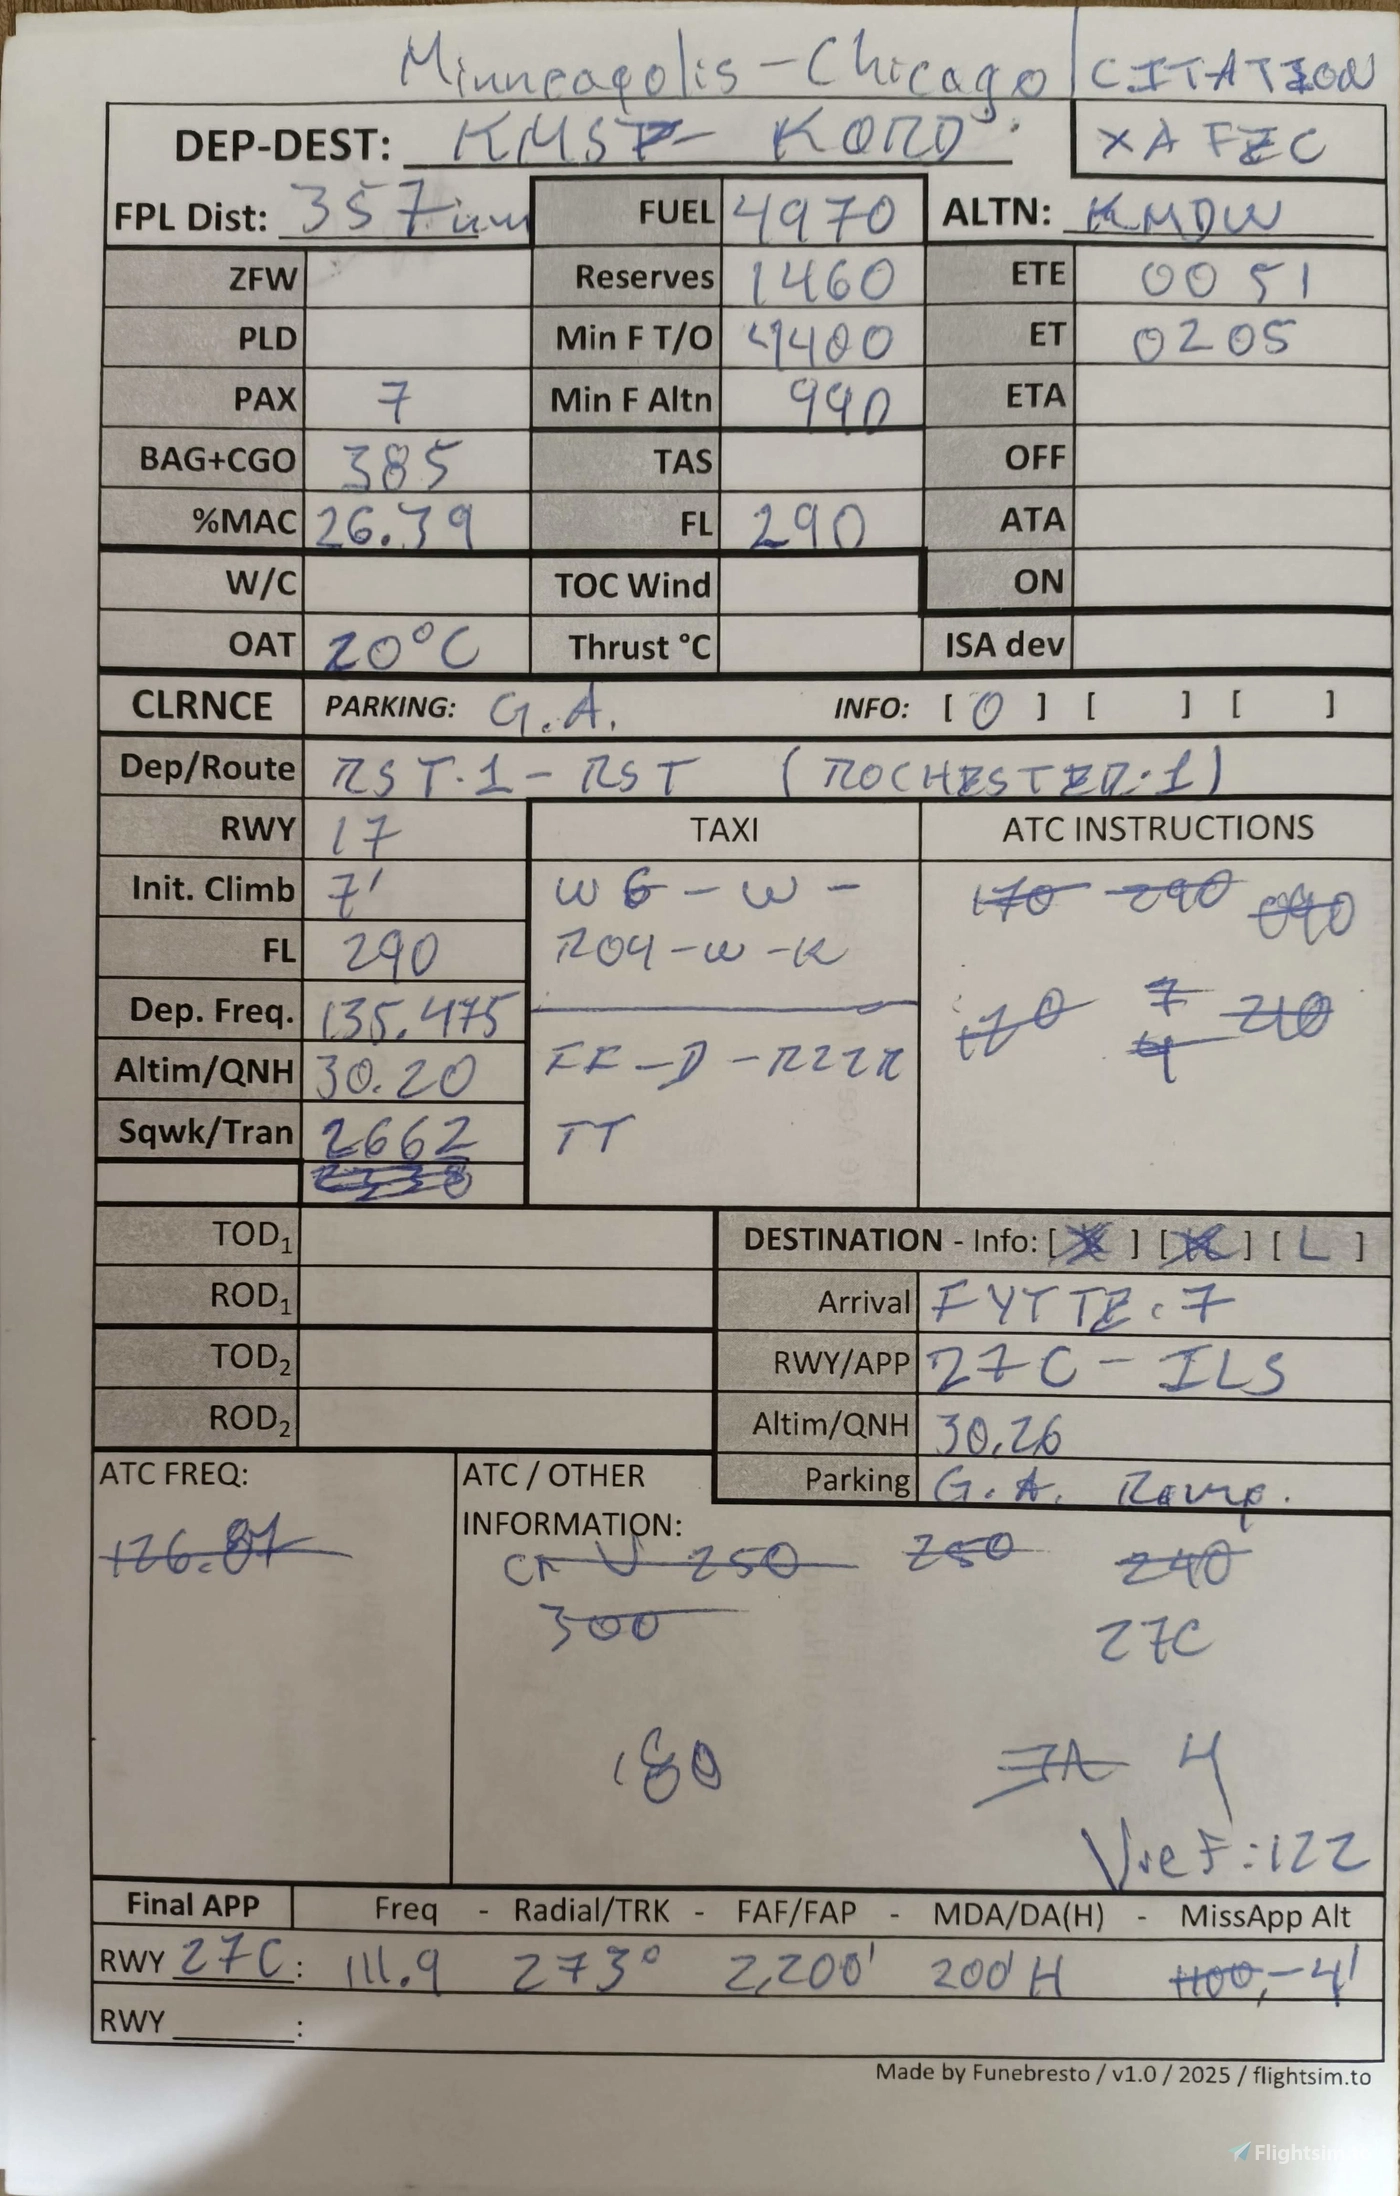 Minneapolis - Chicago | CITATION
DEP-DEST: KMSP - KORD XAFEC
FPL Dist: 357nm FUEL 4970 ALTN: KMDW
ZFW Reserves 1460 ETE 00 51
PLD Min F T/O 4400 ET 0205
PAX 7 Min F Altn 990 ETA
BAG+CGO 385 TAS OFF
%MAC 26.39 FL 290 ATA
W/C TOC Wind ON
OAT 20°C Thrust °C ISA dev
CLRNCE PARKING: G.A. INFO: [ O ] [ ] [ ]
Dep/Route RST.1 - RST (ROCHESTER.1)
RWY 17 TAXI ATC INSTRUCTIONS
Init. Climb 7' W6 - W - 170 290 090
FL 290 R04 - W - K
Dep. Freq. 135.475 170 7 210
4
Altim/QNH 30.20 FF - D - RZZR
Sqwk/Tran 2662 TT
TOD1 DESTINATION - Info: [ ] [ K ] [ L ]
ROD1 Arrival FYTTE.7
TOD2 RWY/APP 27C - ILS
ROD2 Altim/QNH 30.26
ATC FREQ: ATC / OTHER INFORMATION: Parking G.A. Ramp.
126.87 250 250 240
300 27C
180 4
Vref: 122
Final APP Freq - Radial/TRK - FAF/FAP - MDA/DA(H) - MissApp Alt
RWY 27C: 111.9 273° 2,200' 200'H 1100, - 4'
RWY ______:
Made by Funebresto / v1.0 / 2025 / flightsim.to
Flightsim.to